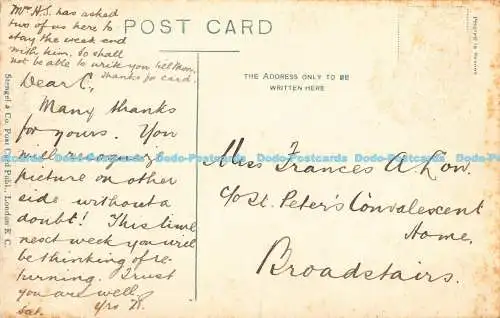 Mr. H.S. has asked
two of us here to
stay the week end
with him. So shall
not be able to write you till Mon.
Thanks for card.
POST CARD
THE ADDRESS ONLY TO BE
WRITTEN HERE
Printed in Saxony
Stengel & Co. Post Card Publ., London E.C.
Dear C,
Many thanks
for yours. You
will recognize
picture on other
side without a
doubt! This time
next week you will
be thinking of re-
turning. Trust
you are well,
Sat.
Miss Frances A. Low.
c/o St. Peter's Convalescent
Home,
Broadstairs.
Dodo-Postcards Dodo-Postcards Dodo-Postcards Dodo-Postcards